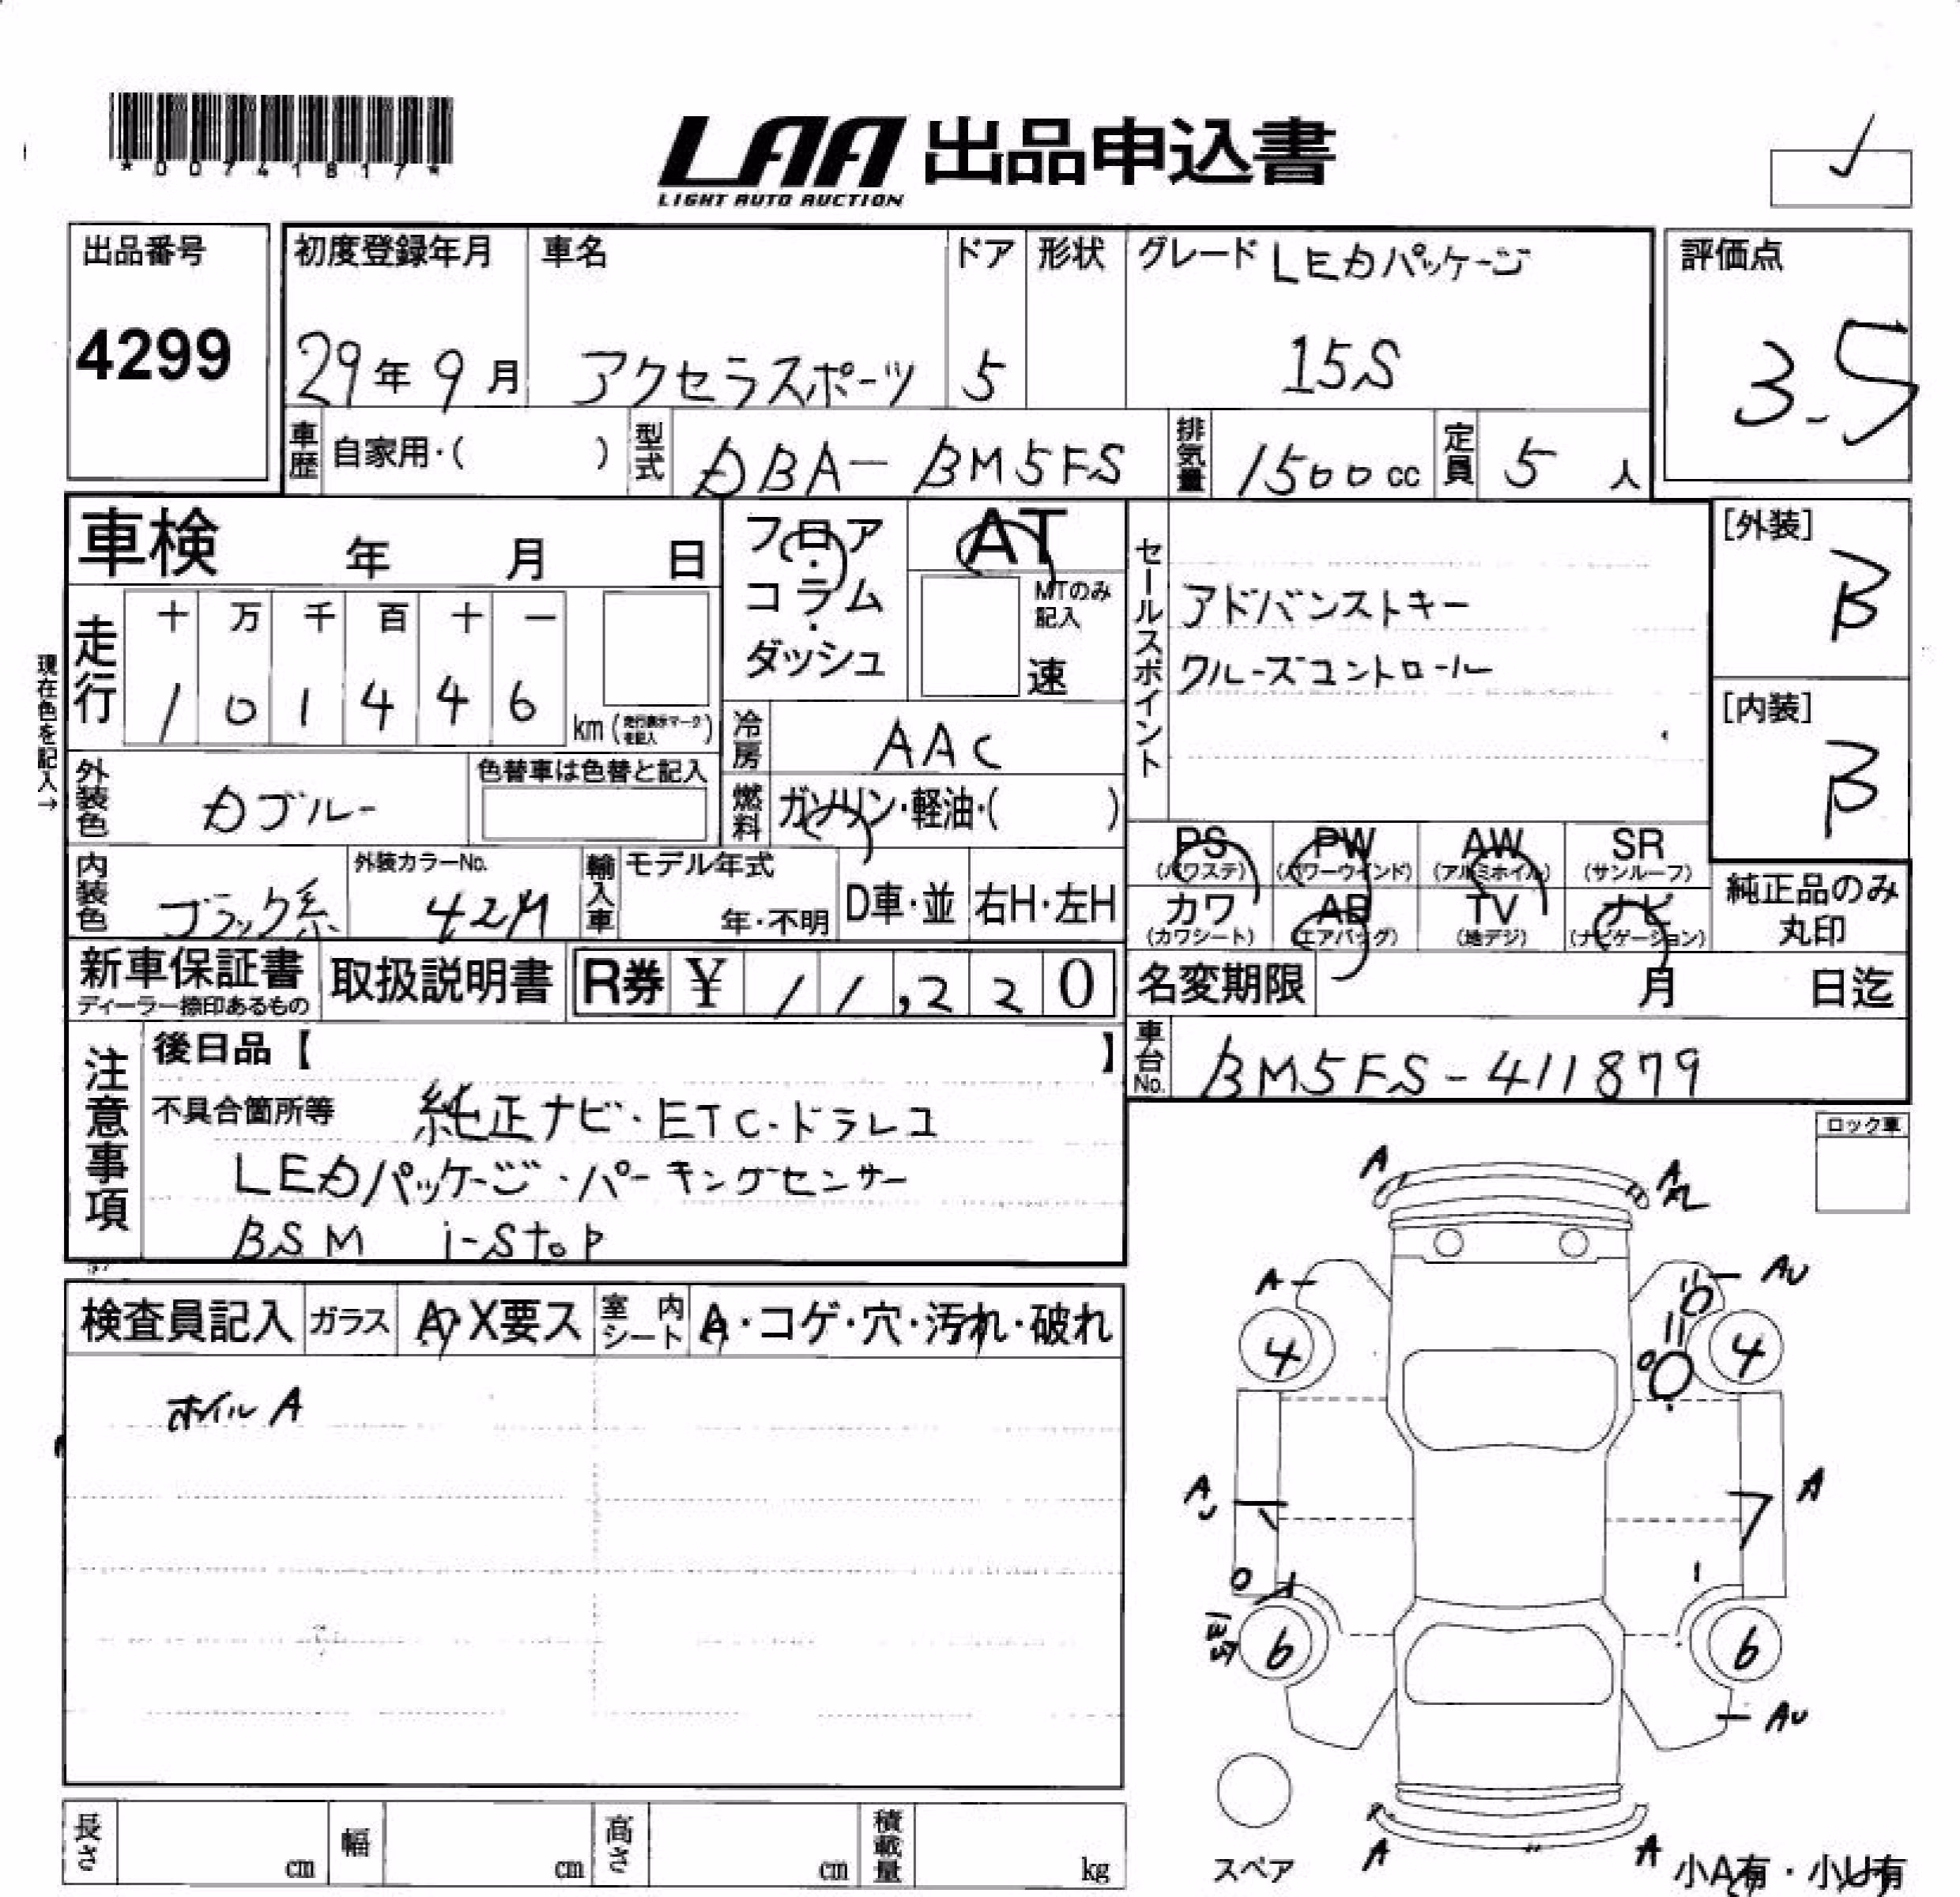 *00741817*
LAA 出品申込書
LIGHT AUTO AUCTION
出品番号
4299
初度登録年月
29年9月
車名
アクセラスポーツ
ドア
5
形状
グレード LEDパッケージ
15S
評価点
3.5
車歴 自家用・( )
型式 DBA-BM5FS
排気量 1500cc
定員 5人
車検 年 月 日
フロア・コラム・ダッシュ
AT
MTのみ記入
速
セールスポイント
アドバンストキー
クルーズコントロール
[外装]
B
[内装]
B
現在色を記入→
走行
十 万 千 百 十 一
1 0 1 4 4 6 km (走行表示マークを記入)
冷房 AAC
外装色 Dブルー
色替車は色替と記入
燃料 ガソリン・軽油・( )
内装色 ブラック系
外装カラーNo.
42M
輸入車 モデル年式
年・不明
D車・並
右H・左H
PS (パワステ)
PW (パワーウインド)
AW (アルミホイル)
SR (サンルーフ)
カワ (カワシート)
AB (エアバッグ)
TV (地デジ)
ナビ (ナビゲーション)
純正品のみ
丸印
新車保証書
ディーラー捺印あるもの
取扱説明書
R券 ¥ 11,220
名変期限 月 日迄
車台No. BM5FS-411879
注意事項
後日品【 】
不具合箇所等 純正ナビ・ETC・ドラレコ
LEDパッケージ・パーキングセンサー
BSM i-stop
ロック車
検査員記入
ガラス A・X要ス
室内シート A・コゲ・穴・汚れ・破れ
ホイルA
A A
A AU
4 4
AU A
6 6
AU
スペア
A A
小A有・小U有
長さ cm
幅 cm
高さ cm
積載量 kg